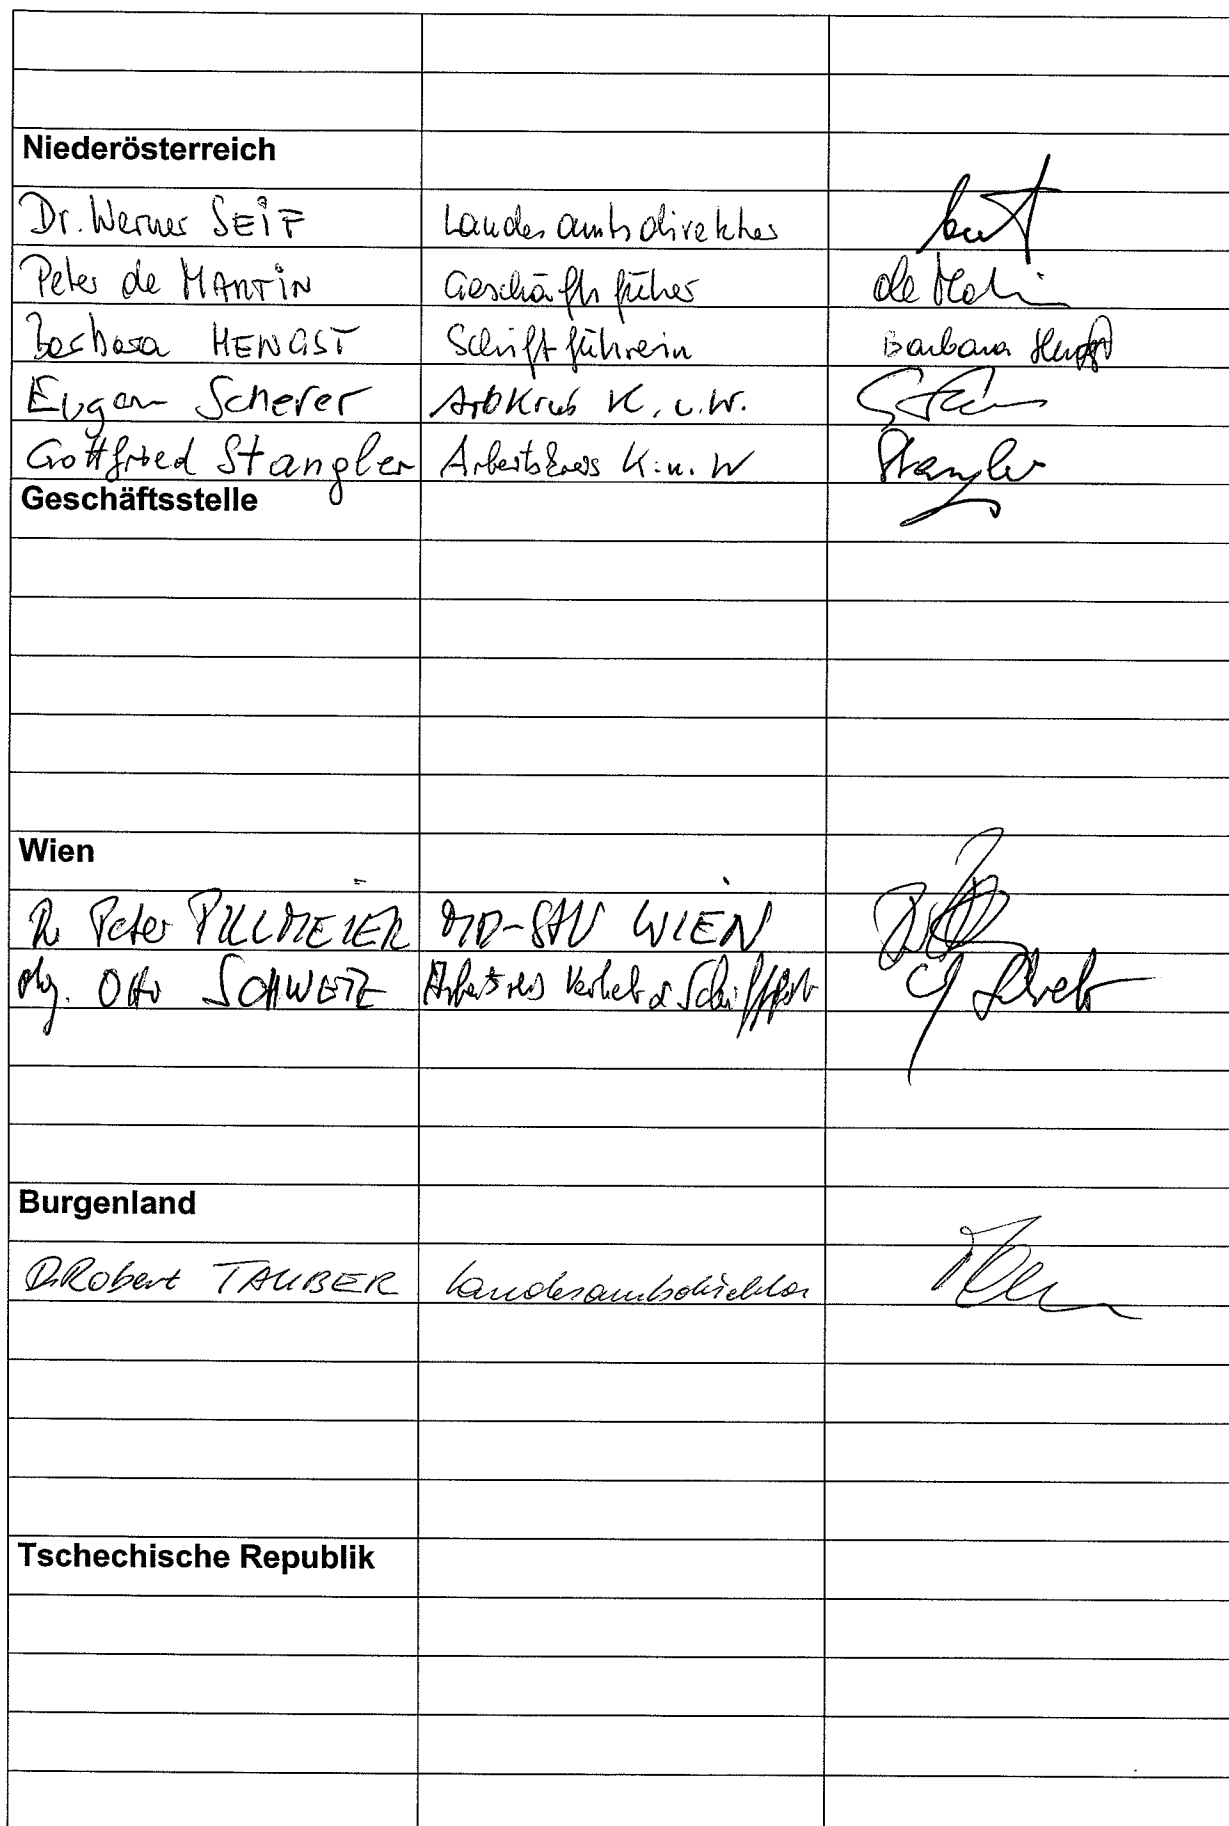 Niederösterreich
Dr. Werner SEIF Landesamtsdirektor
Peter de MARTIN Geschäftsführer de Martin
Barbara HENGST Schriftführerin Barbara Hengst
Eugen Scherer ArbKreis K. u. W.
Gottfried Stangler Arbeitskreis K. u. W Stangler
Geschäftsstelle
Wien
Dr Peter PILLMEIER MD-STV WIEN
Mag. Otto SCHWETZ Arbeitskreis Verkehr & Schifffahrt
Burgenland
Dr Robert TAUBER Landesamtsdirektor
Tschechische Republik